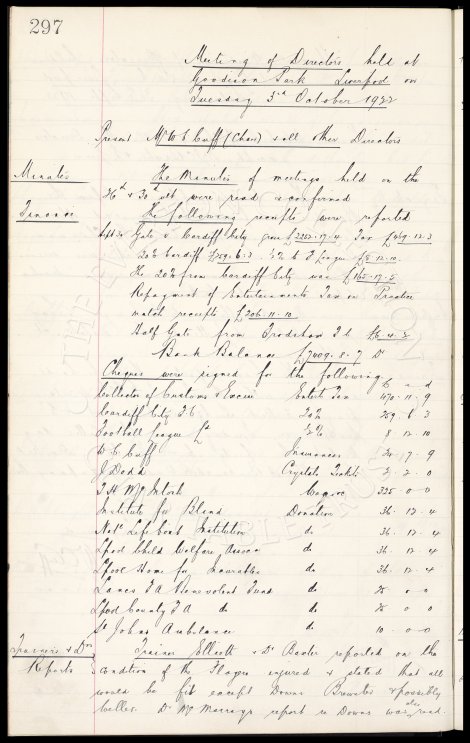 297
Meeting of Directors held at
Goodison Park Liverpool on
Tuesday 3rd October 1922
Present Mr W C Cuff (Chair) & all other Directors
Minutes
The Minutes of meetings held on the
26th & 30th ult were read & confirmed
Finance
The following receipts were reported
Sept 30 Gate v Cardiff City gross £2252.17.4. Tax
20% Cardiff £259.8.3. ½% to F League £8.12.10.
The 20% from Cardiff City was
Repayment of Entertainments Tax on Practice
match receipts £206.11.10
Half Gate from Frodsham Tl
Bank Balance £7009.8.7 Dr
Cheques were signed for the following
£ s d
Collector of Customs & Excise Entert Tax 470 . 11 . 9
Cardiff City FC 20% 259 8 3
Football League Ld ½% 8 12 10
W C Cuff Insurances 20 . 17 . 9
J Dodd Crystals Tickets 2 . 2 . 0
T H McIntosh Wages 325 0 0
Institute for Blind Donation 36 . 12 . 4
Natl Life boat Institution do 36 . 12 . 4
Lpool Child Welfare Assocn do 36 . 12 . 4
Lpool Home for Incurables do 36 . 12 . 4
Lancs F A Benevolent Fund do 25 0 0
Lpool County F A do do 25 0 0
St Johns Ambulance do 10 . 0 0
Trainers & Drs
Reports
Trainer Elliott & Dr Baxter reported on the
condition of the Players injured & stated that all
would be fit except Downs Brewster & possibly
Weller. Dr McMurrays report re Downs was also read.